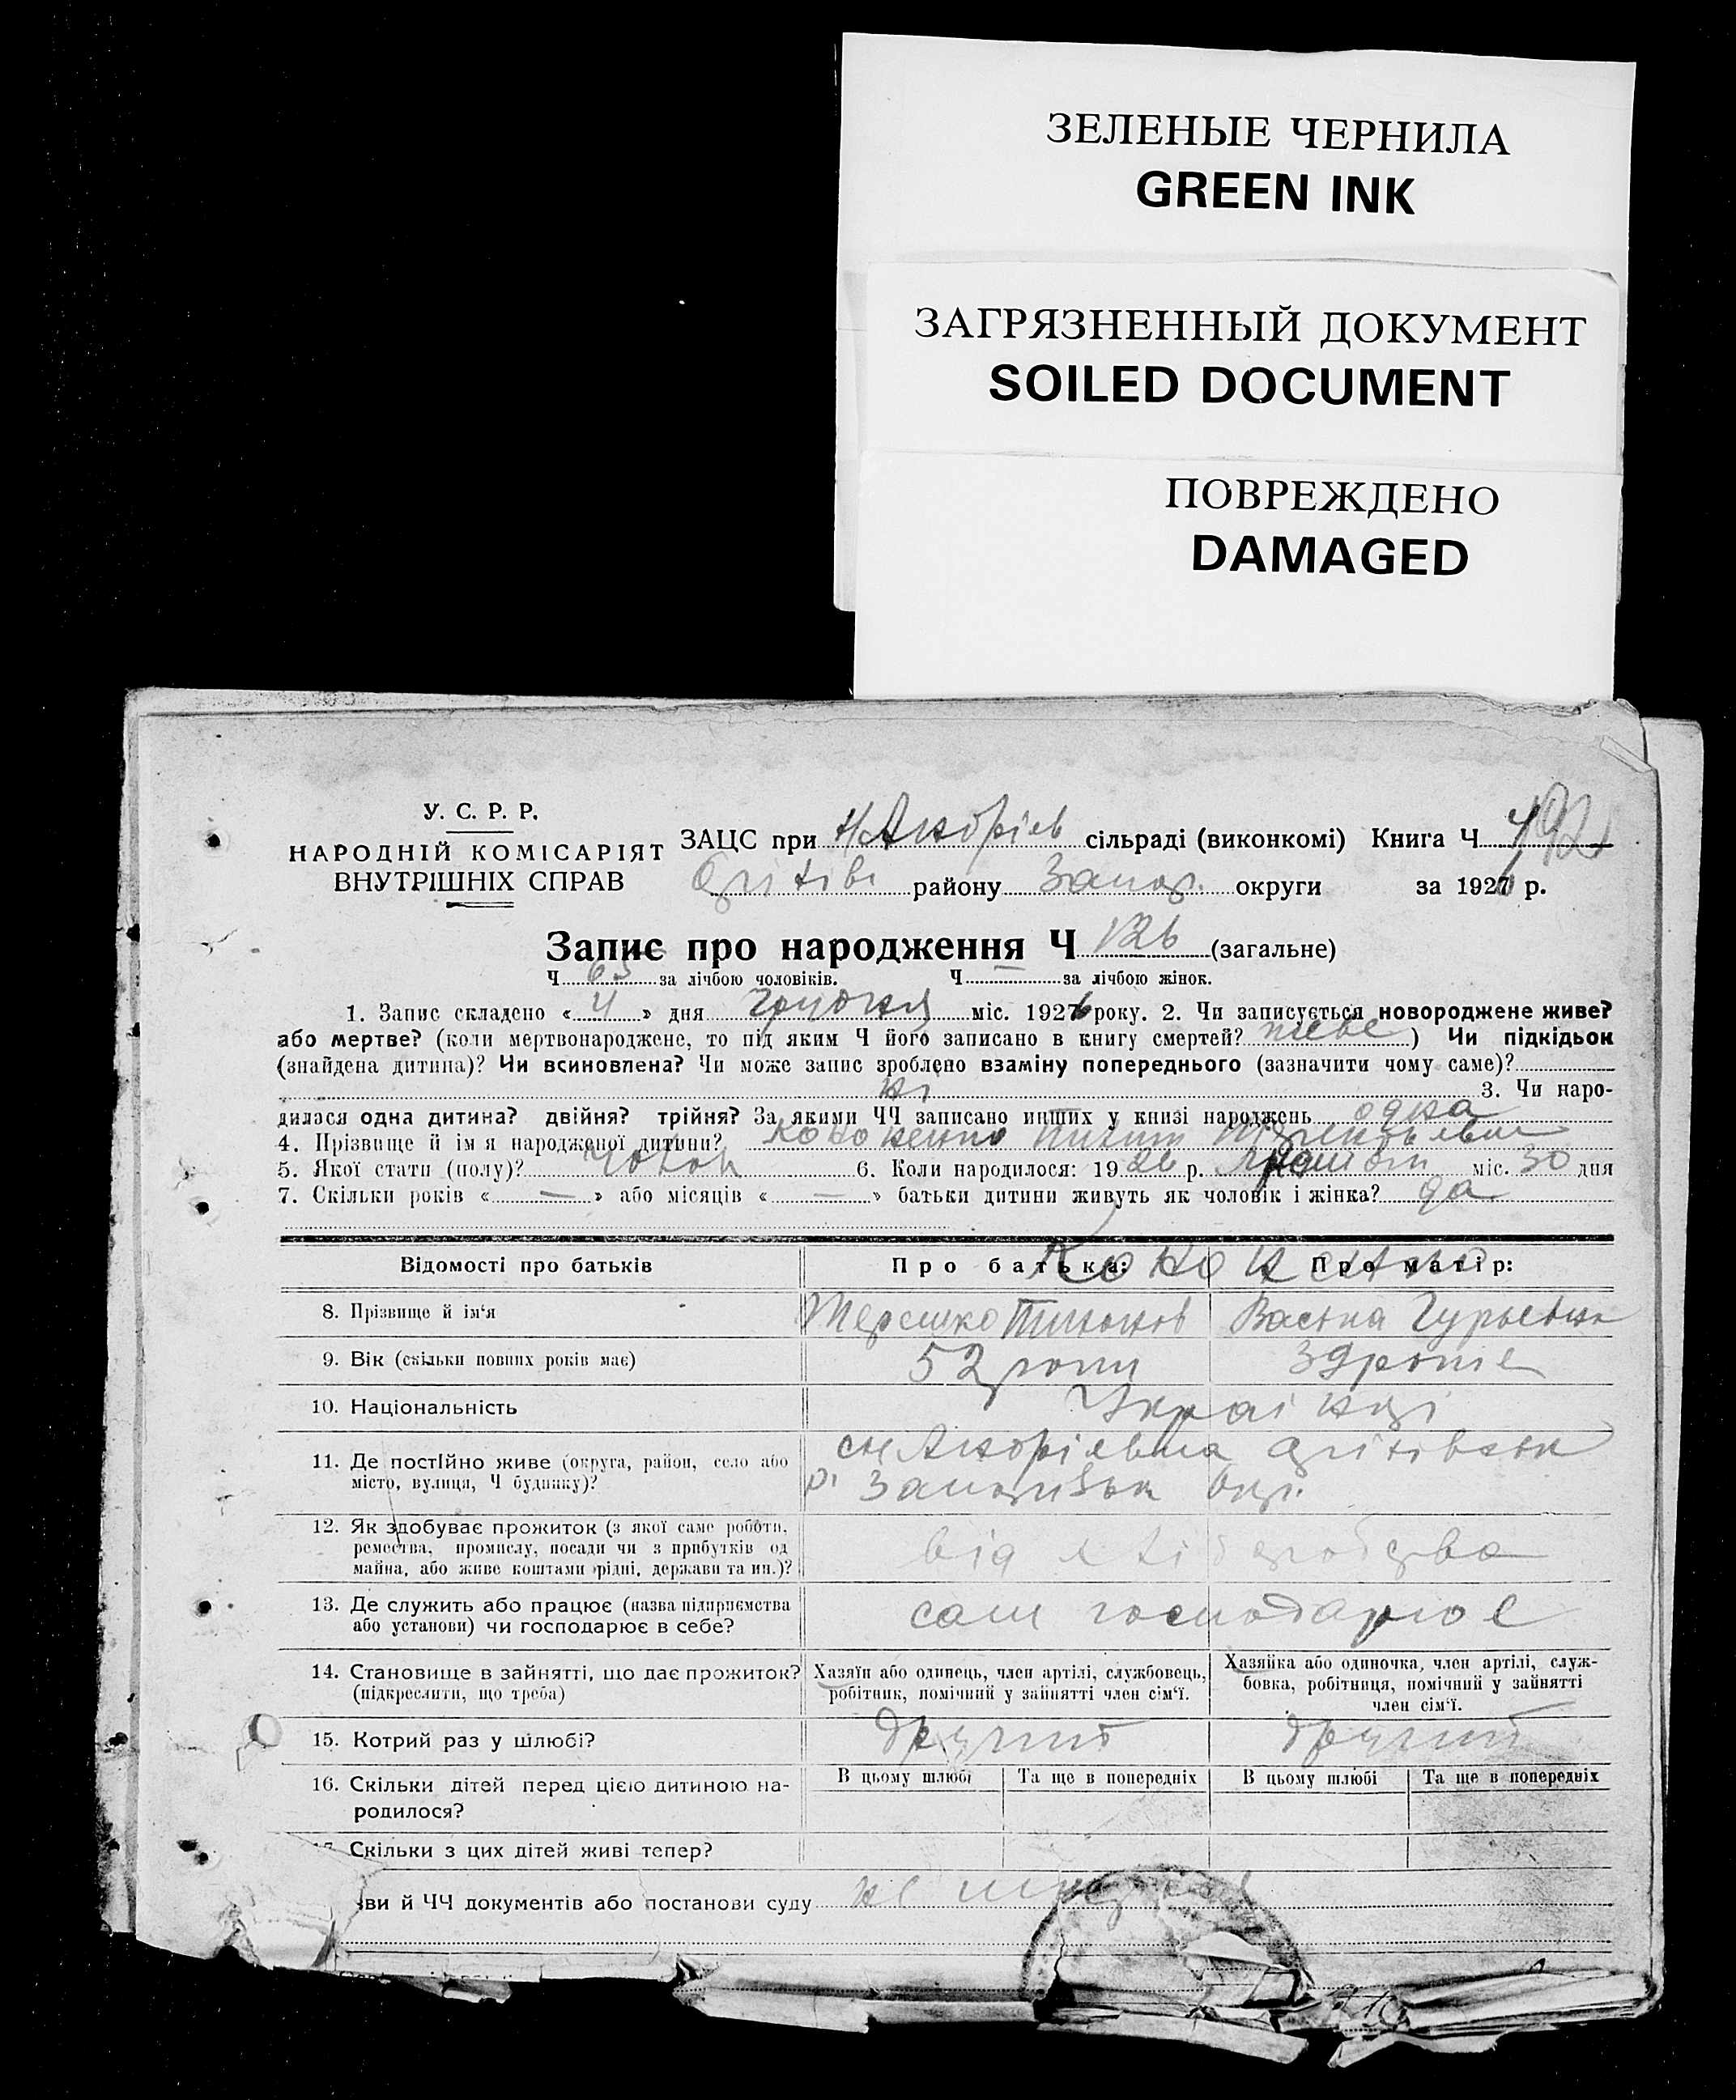 ЗЕЛЕНЫЕ ЧЕРНИЛА
GREEN INK
ЗАГРЯЗНЕННЫЙ ДОКУМЕНТ
SOILED DOCUMENT
ПОВРЕЖДЕНО
DAMAGED
У. С. Р. Р.
НАРОДНІЙ КОМІСАРІЯТ
ВНУТРІШНІХ СПРАВ
ЗАЦС при сільраді (виконкомі) Книга Ч
району Запор. округи за 1926 р.
Запис про народження Ч 126 (загальне)
Ч 65 за лічбою чоловіків. Ч — за лічбою жінок.
1. Запис складено « 4 » дня грудня міс. 1926 року. 2. Чи записується новороджене живе?
або мертве? (коли мертвонароджене, то під яким Ч його записано в книгу смертей? живе ) Чи підкідьок
(знайдена дитина)? Чи всиновлена? Чи може запис зроблено взаміну попереднього (зазначити чому саме)?
ні 3. Чи наро-
дилася одна дитина? двійня? трійня? За якими ЧЧ записано инших у книзі народжень одна
4. Прізвище й ім я народженої дитини? Кононенко
5. Якої стати (полу)? чолов 6. Коли народилося: 1926 р. міс. 30 дня
7. Скільки років « — » або місяців « — » батьки дитини живуть як чоловік і жінка? да
Відомості про батьків Про батька: Про матір:
Кононенко
8. Прізвище й ім'я Терешко Васька Гурьевна
9. Вік (скільки повних років має) 52 роки 39 років
10. Національність Українці
11. Де постійно живе (округа, район, село або
місто, вулиця, Ч будинку)?
12. Як здобуває прожиток (з якої саме роботи,
ремества, промислу, посади чи з прибутків од
майна, або живе коштами рідні, держави та ин.)?
від хліборобства
13. Де служить або працює (назва підприємства
або установи) чи господарює в себе?
сам господарює
14. Становище в зайнятті, що дає прожиток?
(підкреслити, що треба)
Хазяїн або одинець, член артілі, службовець,
робітник, помічний у зайнятті член сім'ї.
Хазяйка або одиночка, член артілі, служ-
бовка, робітниця, помічний у зайнятті
член сім'ї.
15. Котрий раз у шлюбі? другий другий
16. Скільки дітей перед цією дитиною на-
родилося?
В цьому шлюбі Та ще в попередніх В цьому шлюбі Та ще в попередніх
Скільки з цих дітей живі тепер?
ви й ЧЧ документів або постанови суду не